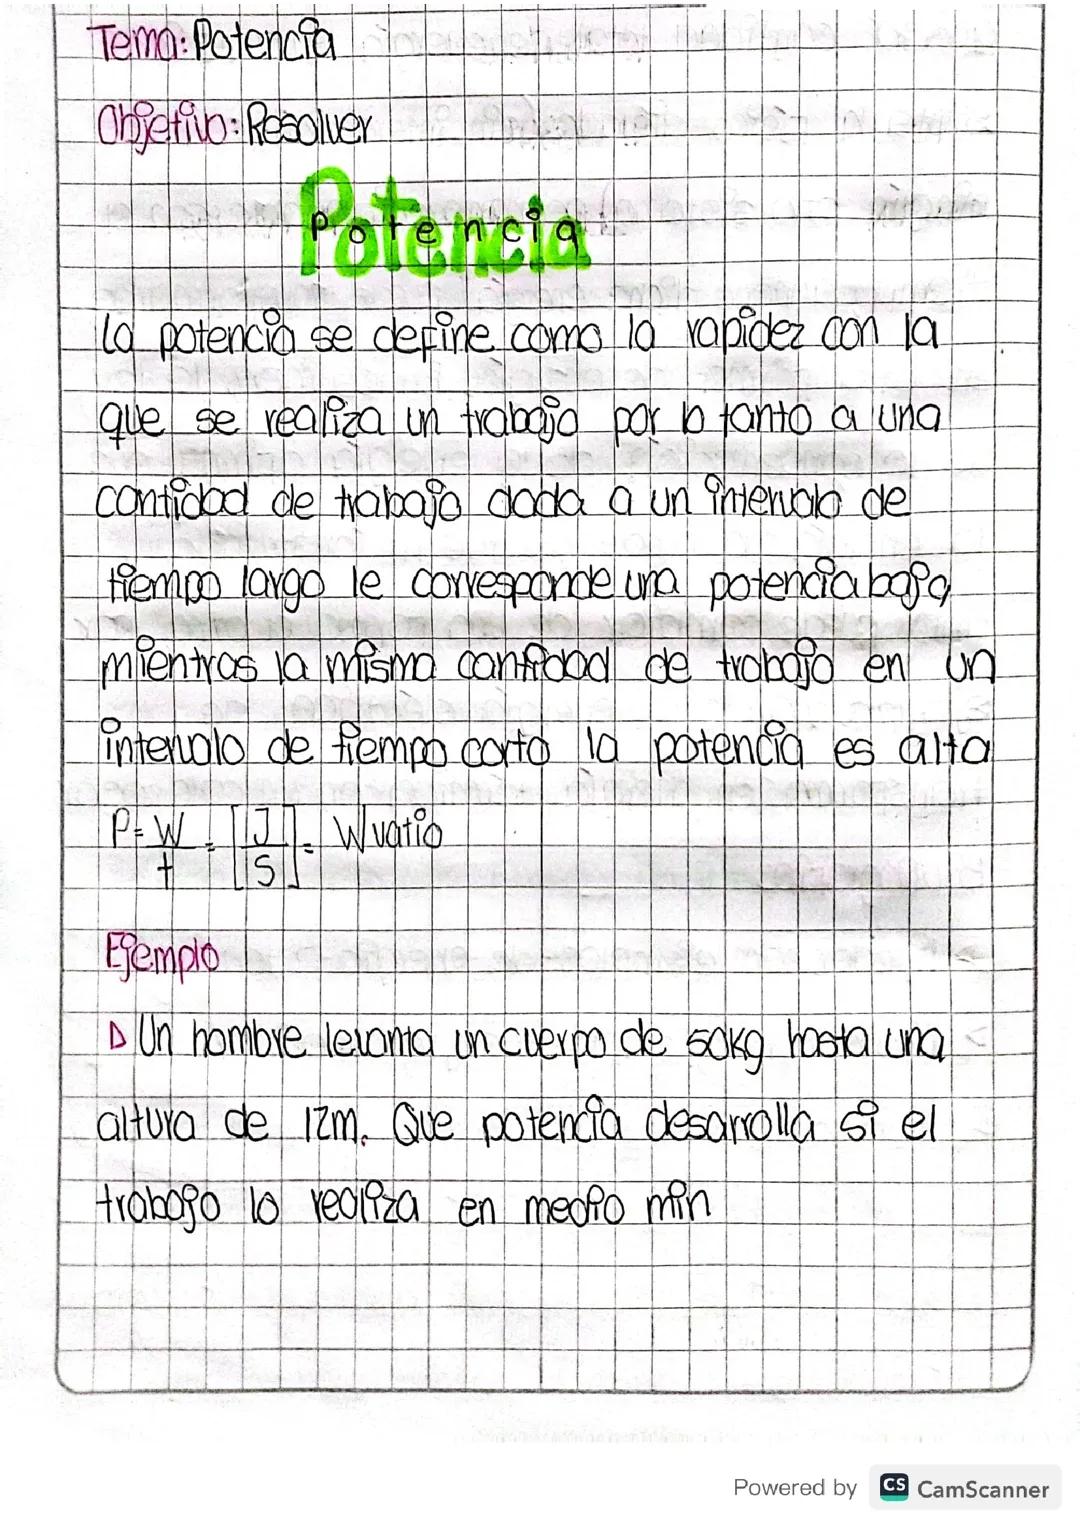 Tema: Potencia
Objetivo: Resolver
Potencia
La potencia se define como la rapidez con la
que se realiza un trabajo por lo tanto a una
cantidad de trabajo dada a un intervalo de
tiempo largo le corresponde una potencia baja
mientras la misma cantidad de trabajo en un
intervalo de tiempo corto la potencia es alta
P = W/t = [J/S] = W vatio
Ejemplo
▷ Un hombre levanta un cuerpo de 50kg hasta una
altura de 12m. Que potencia desarrolla si el
trabajo lo realiza en medio min
Powered by CS CamScanner